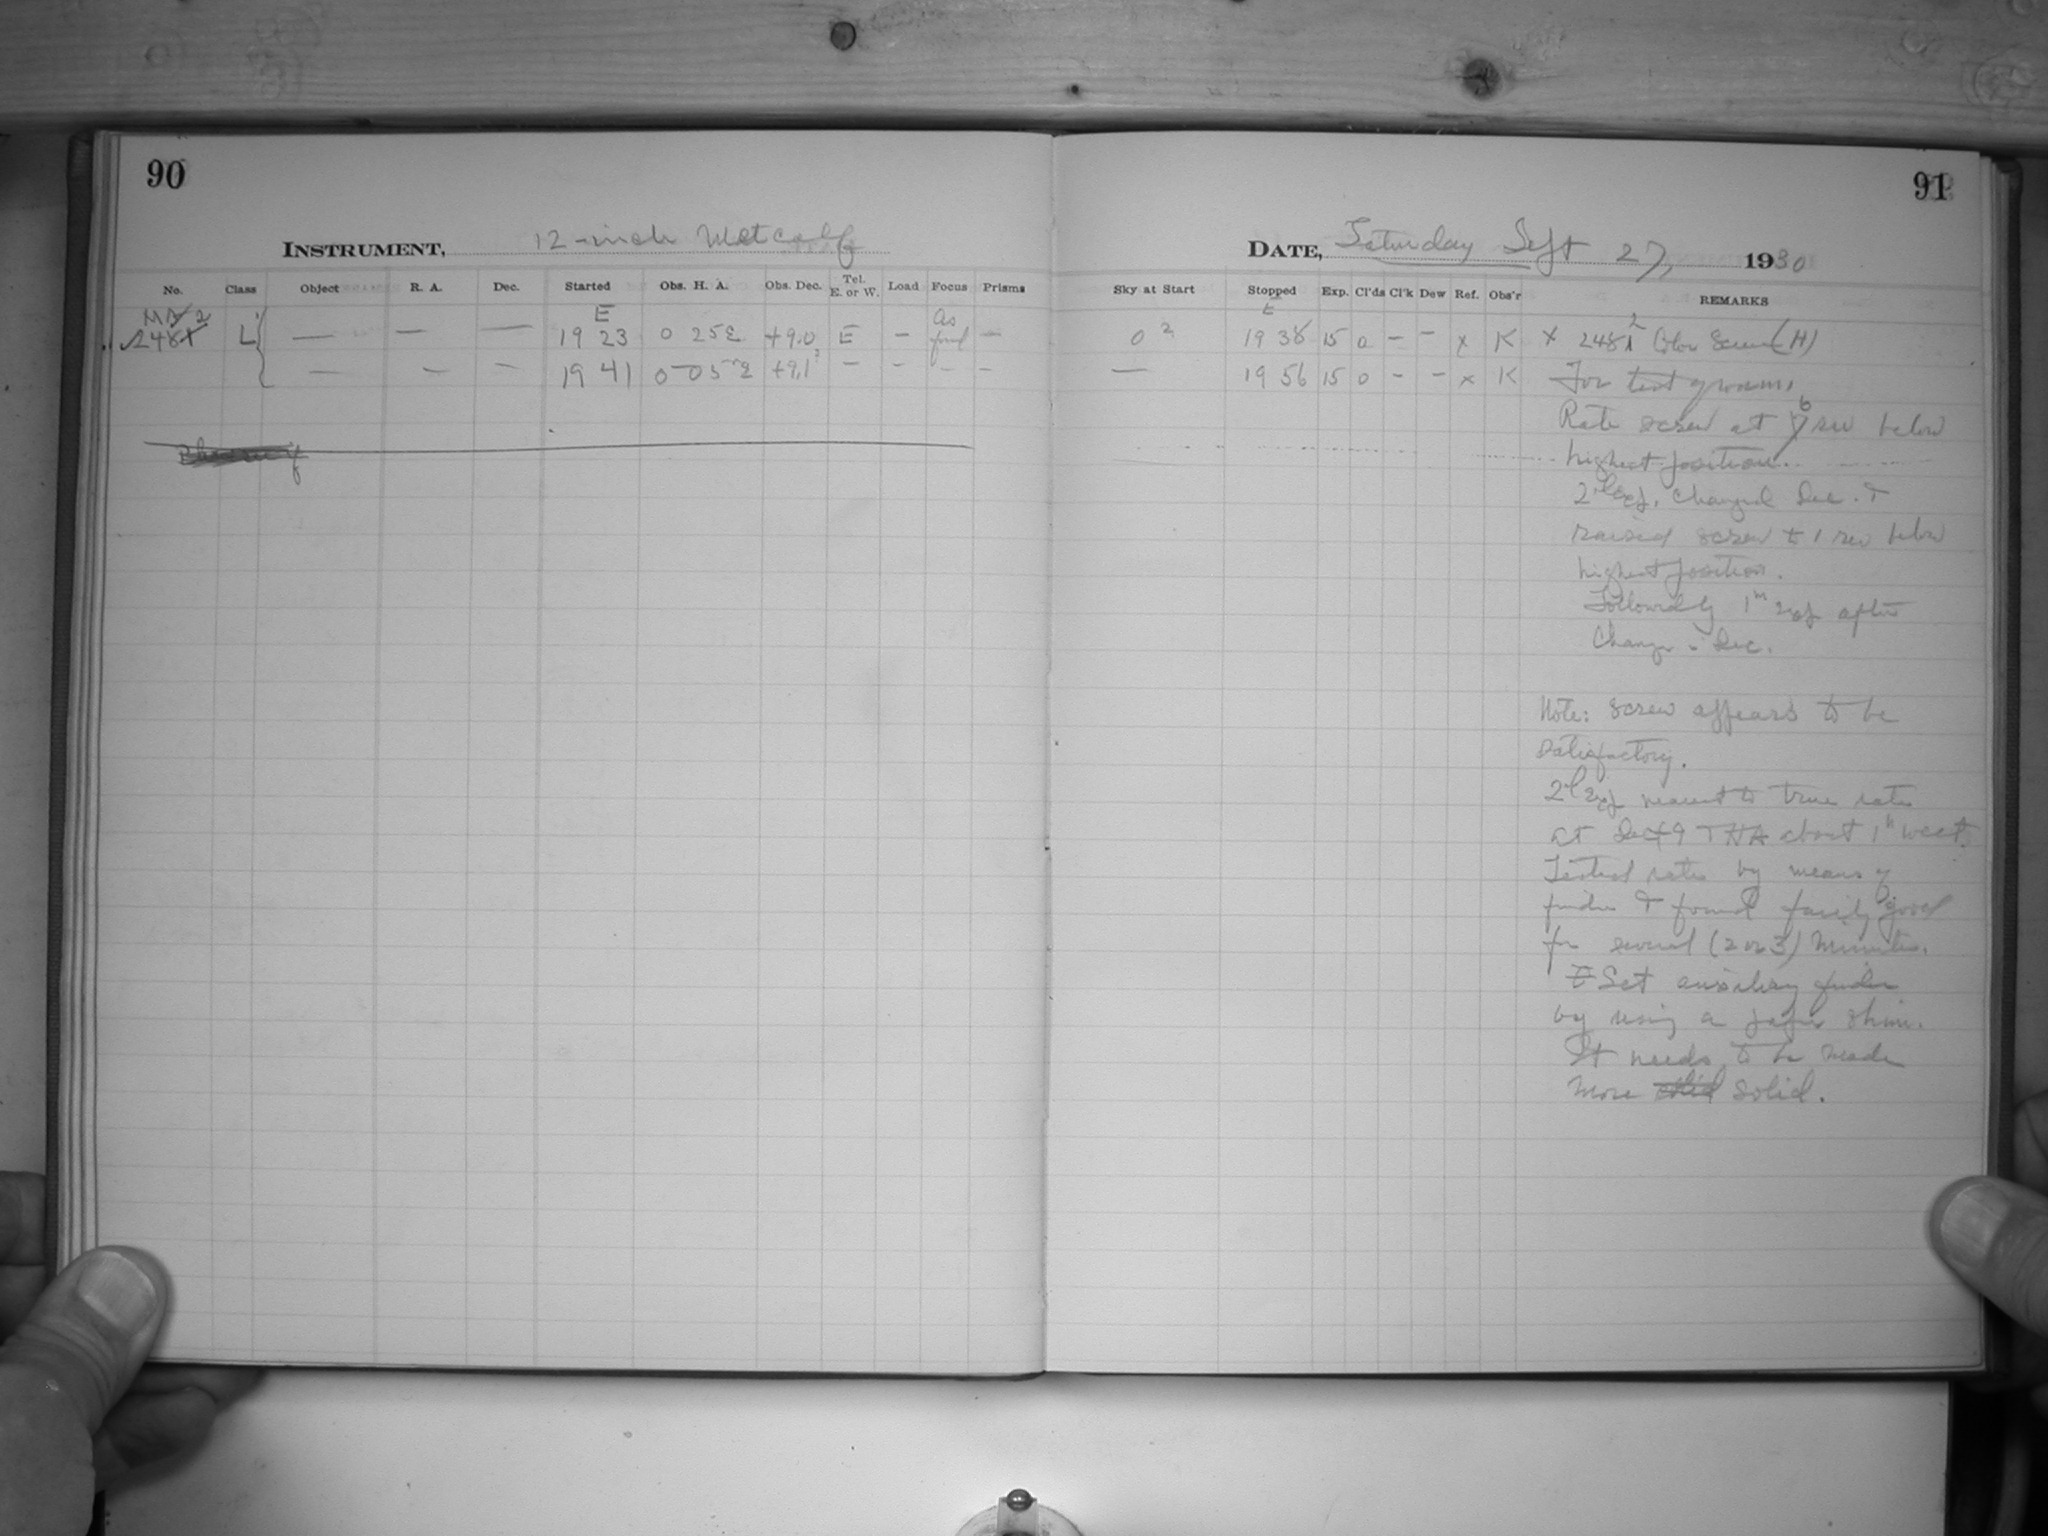 90
INSTRUMENT, 12-inch Metcalf
No. Class Object R. A. Dec. Started Obs. H. A. Obs. Dec. Tel. E. or W. Load Focus Prisms
E
2481 L — — — 19 23 0 25E +9.0 E — As found —
— — — 19 41 0-05 +9.1 — — — —
91
DATE, Saturday Sept 27, 1930
Sky at Start Stopped Exp. Cl'ds Cl'k Dew Ref. Obs'r REMARKS
E
0 2 19 38 15 0 — — x K x 248 Color Screen (H)
— 19 56 15 0 — — x K For test
Rate screw at 6 rev below
highest position.
2d Exp. Changed Dec. &
raised screw to 1 rev below
highest position.
Followed by 1m exp after
Change Dec.
Note: Screw appears to be
satisfactory.
2d Exp nearest to true rate
at Dec +9 THA about 1h west.
Tested rates by means of
finder & found fairly good
for several (2 or 3) minutes.
Set auxiliary finder
by using a paper shim.
It needs to be made
more solid.